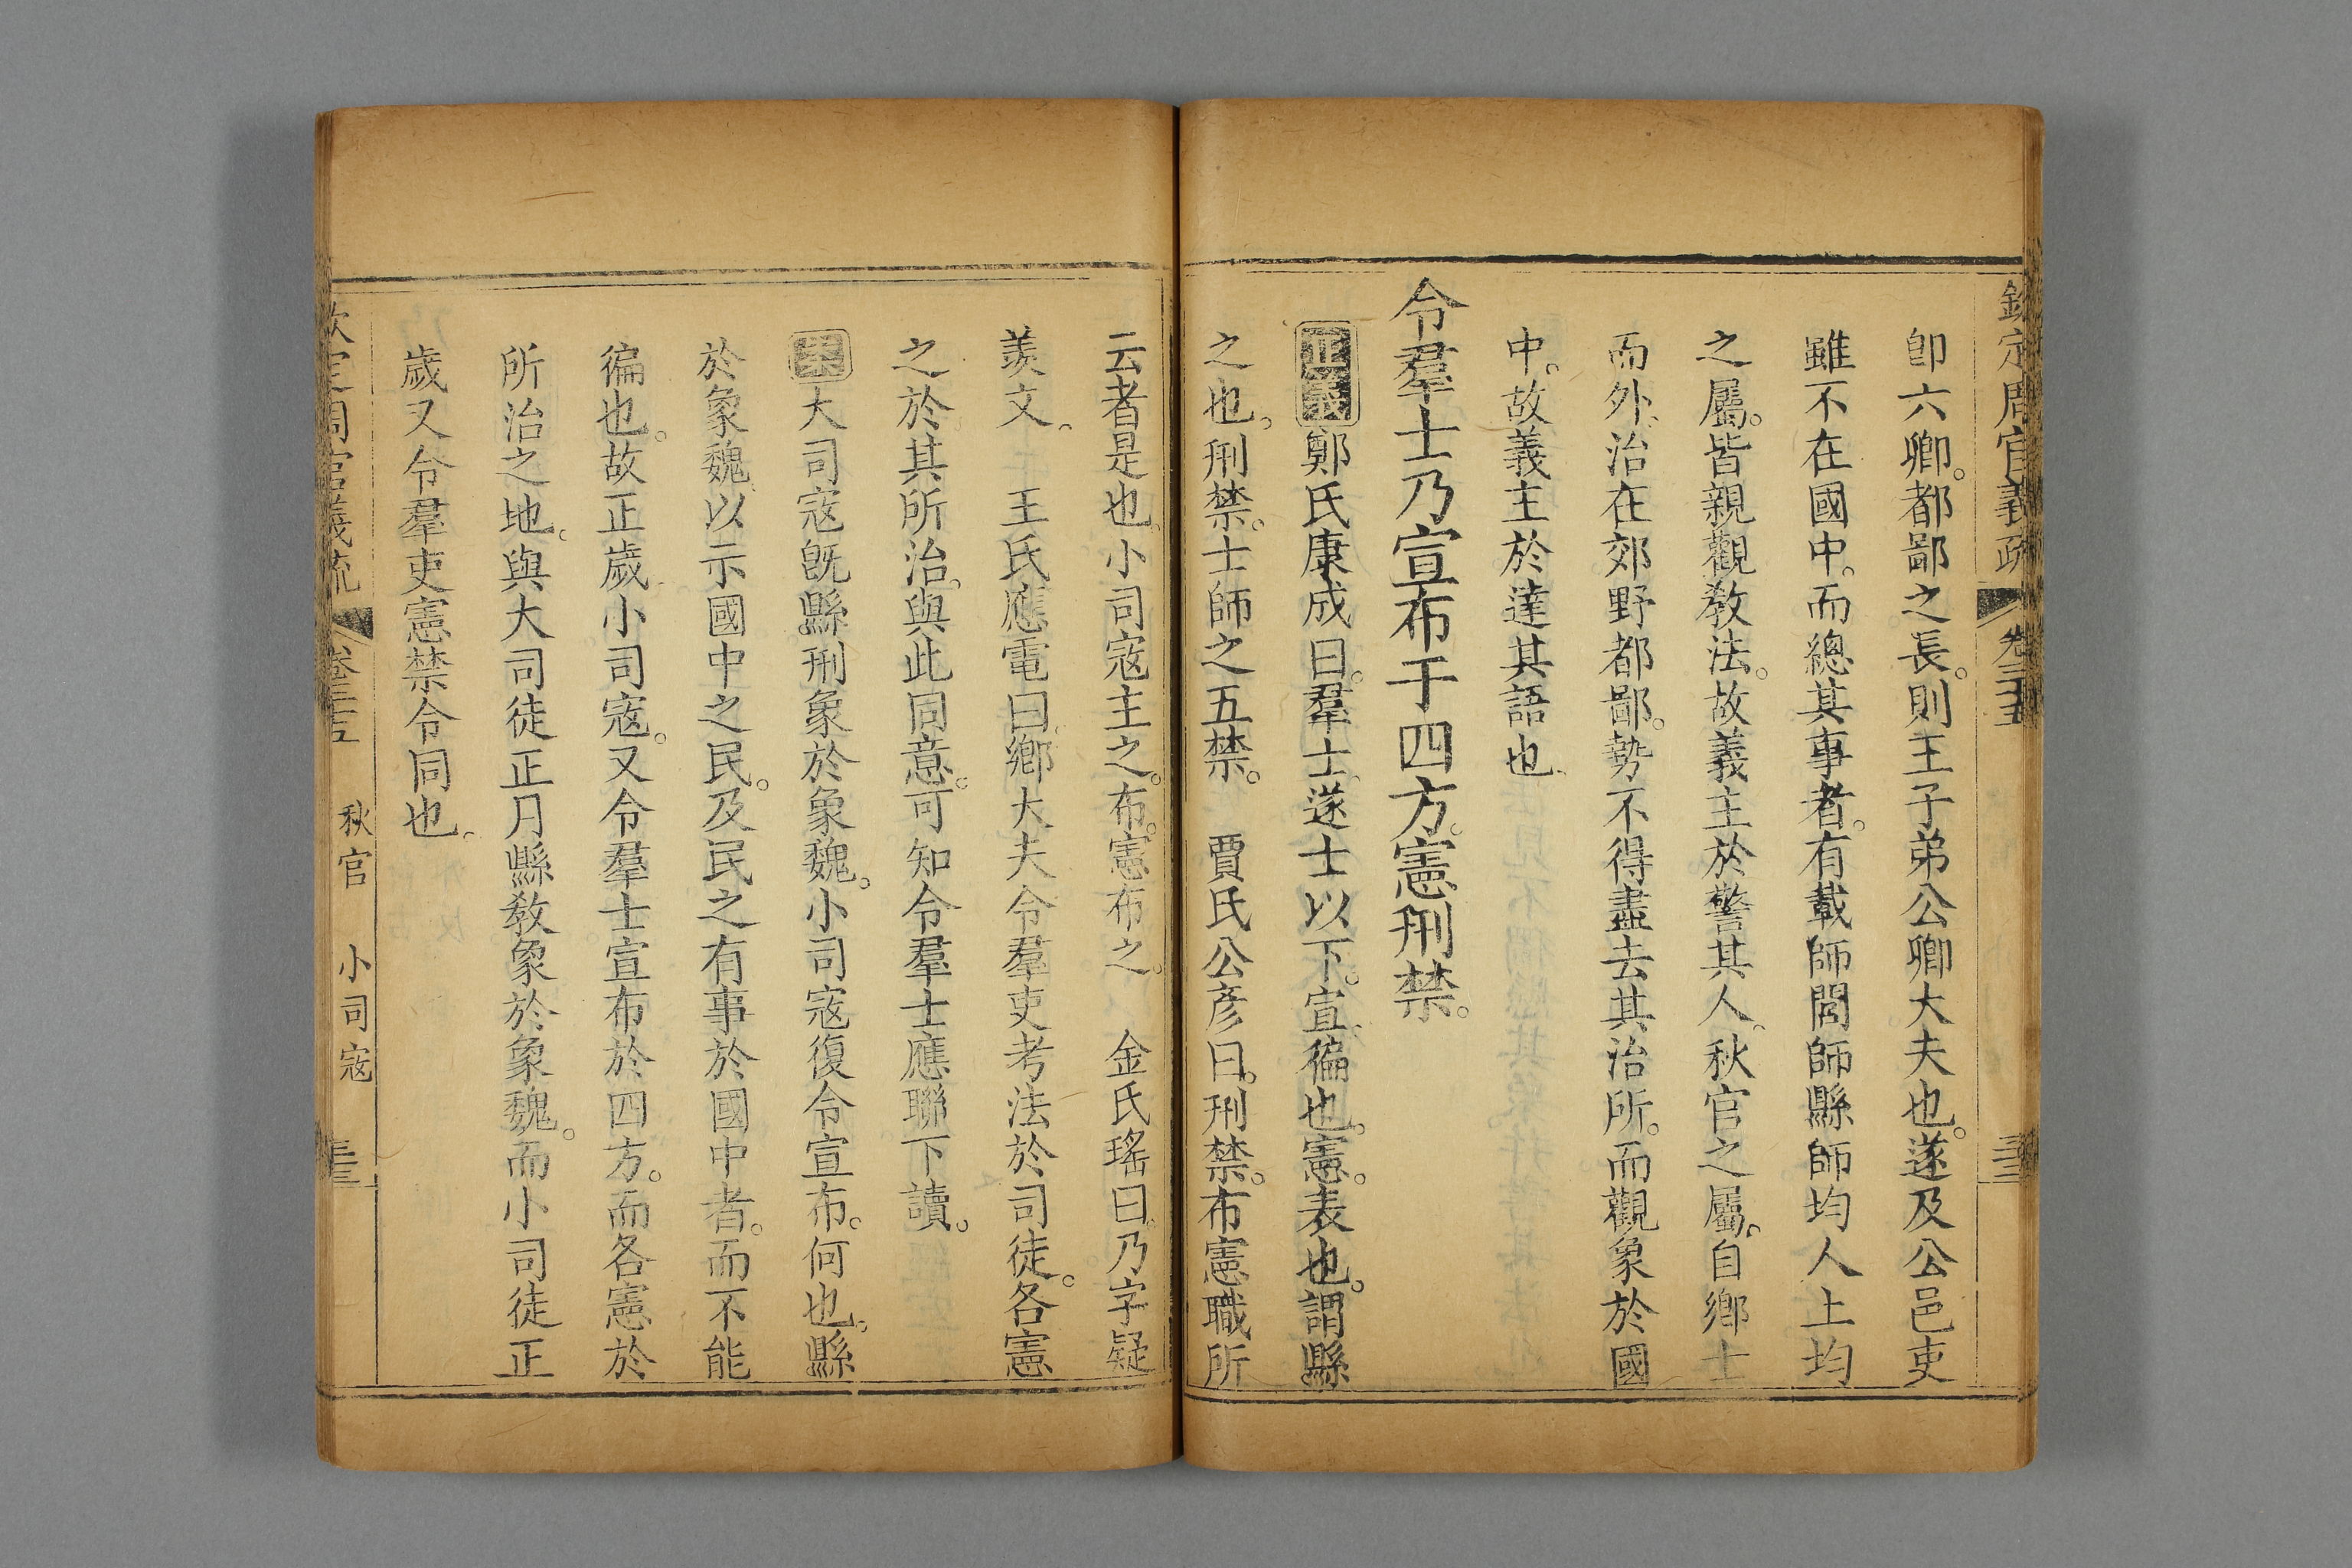 欽定周官義疏 卷三十五 三十三
卽六卿。都鄙之長。則王子弟公卿大夫也。遂及公邑吏
雖不在國中。而總其事者。有載師閭師縣師均人上均
之屬。皆親觀敎法。故義主於警其人。秋官之屬。自鄉士
而外。治在郊野都鄙。勢不得盡去其治所。而觀象於國
中。故義主於達其語也。
令羣士乃宣布于四方。憲刑禁。
正義鄭氏康成曰。羣士。遂士以下。宣。徧也。憲。表也。謂縣
之也。刑禁。士師之五禁。 賈氏公彥曰。刑禁。布憲職所
云者是也。小司寇主之。布憲布之。 金氏瑤曰。乃字疑
羨文。 王氏應電曰。鄉大夫令羣吏考法於司徒。各憲
之於其所治。與此同意。可知令羣士應聯下讀。
案大司寇旣縣刑象於象魏。小司寇復令宣布。何也。縣
於象魏。以示國中之民。及民之有事於國中者。而不能
徧也。故正歲。小司寇。又令羣士宣布於四方。而各憲於
所治之地。與大司徒正月縣敎象於象魏。而小司徒正
歲又令羣吏憲禁令同也。
欽定周官義疏 卷三十五 秋官 小司寇 三十三